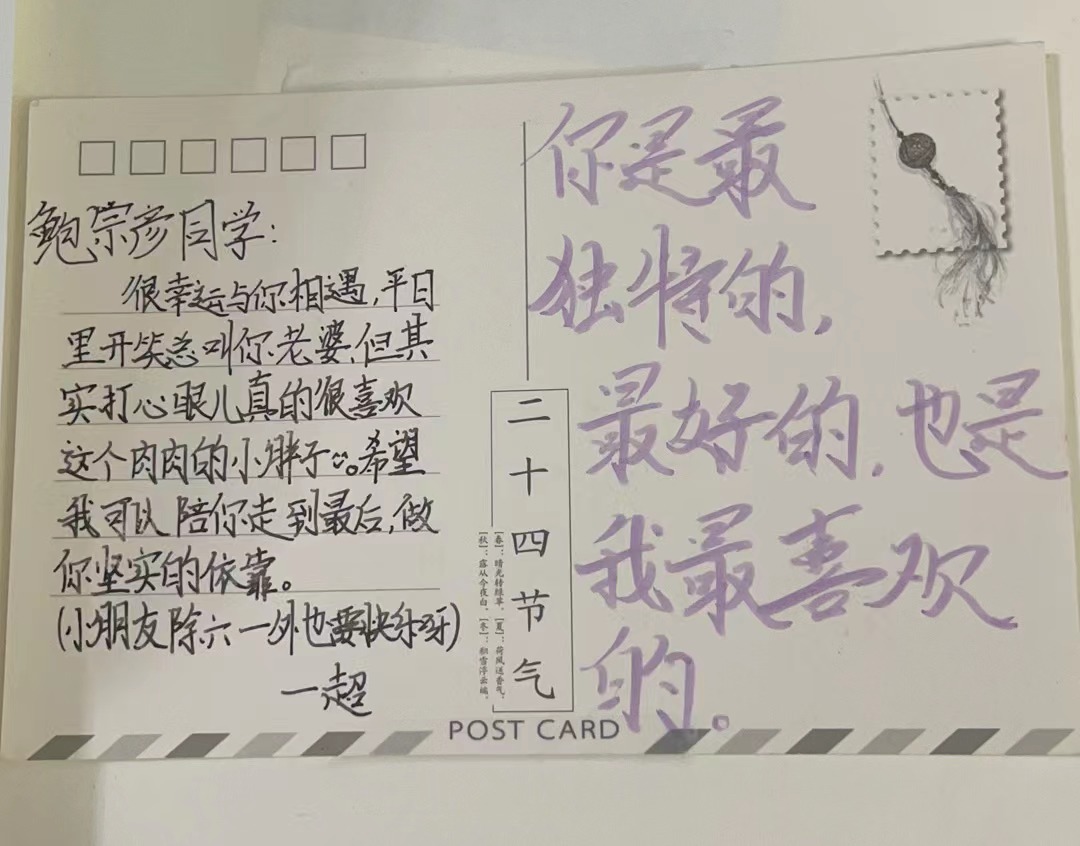 鲍宗彦同学：
很幸运与你相遇,平日
里开笑总叫你老婆,但其
实打心眼儿真的很喜欢
这个肉肉的小胖子。希望
我可以陪你走到最后,做
你坚实的依靠。
(小朋友除六一外也要快乐呀)
一超
你是最
独特的,
最好的,也是
我最喜欢
的。
二十四节气
[春]：晴光转绿草，[夏]：荷风送香气，
[秋]：露从今夜白，[冬]：积雪浮云端。
POST CARD